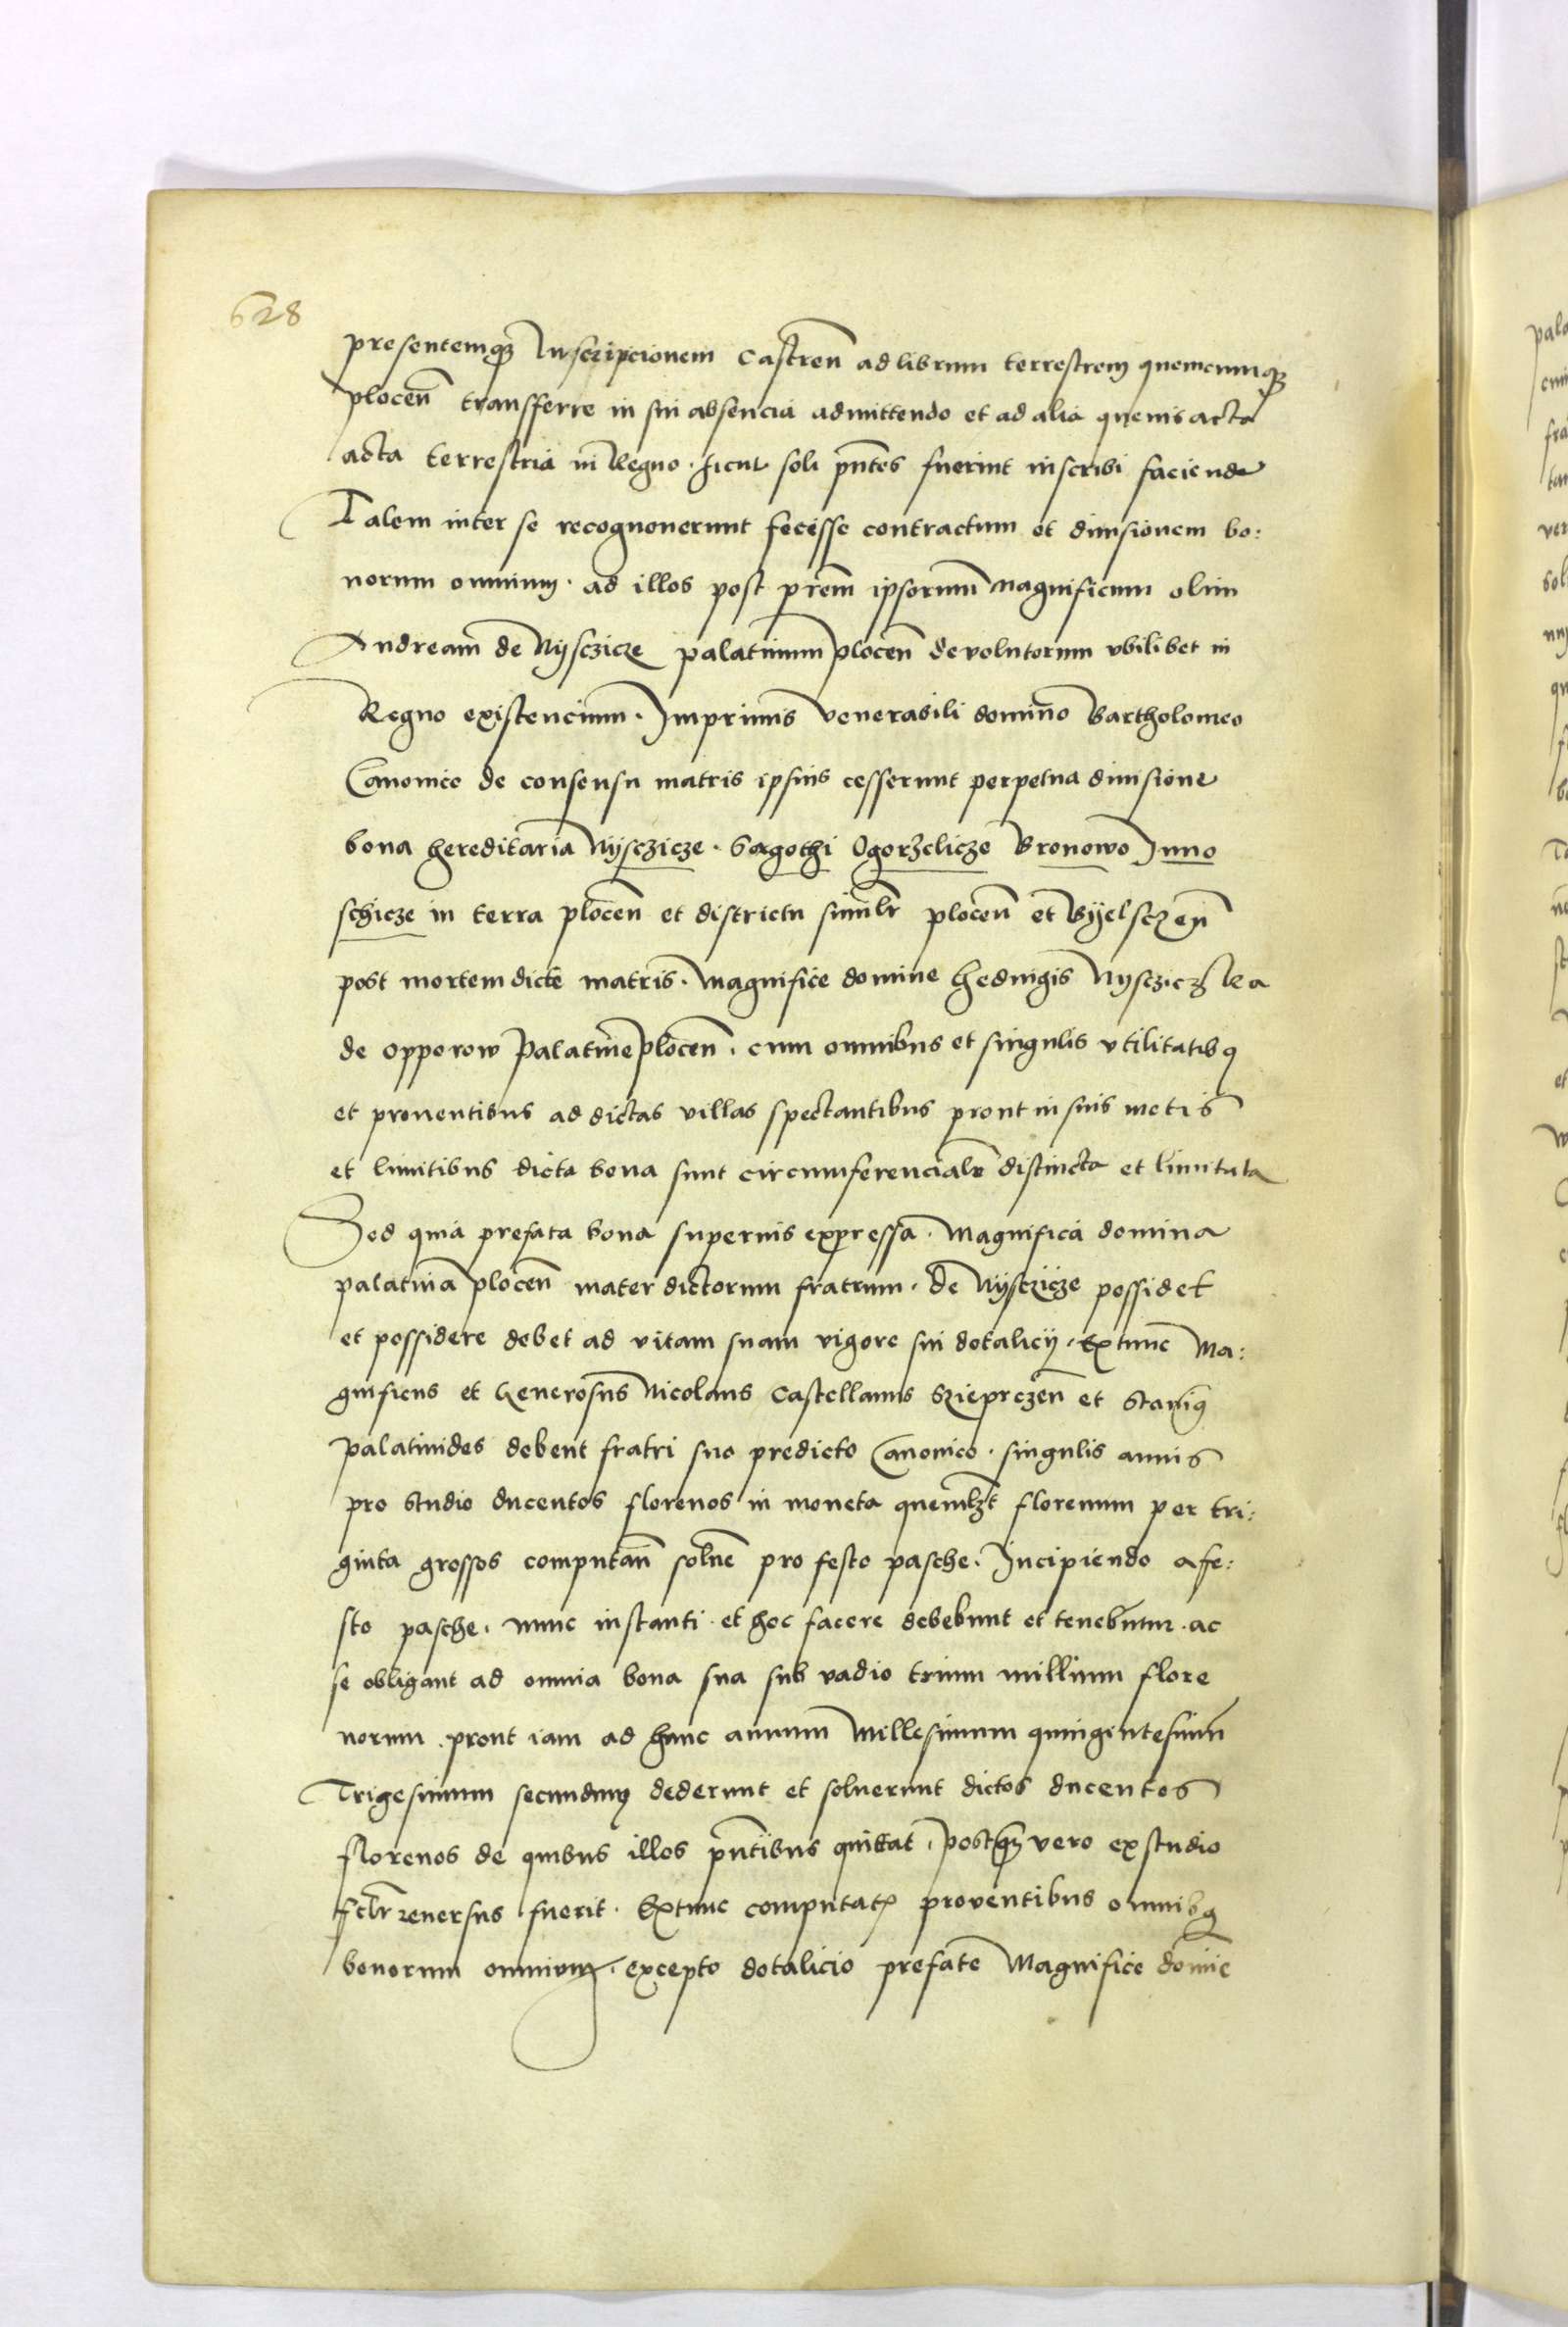 628
presentemq3 Inscripcionem Castren̄ ad librum terrestrem quemcumq3
plocen̄ transsferre in sui absencia admittendo et ad alia quevis acta
acta terrestria in Regno sicut soli pn̄tes fuerint inscribi faciende
Talem inter se recognouerunt fecisse contractum et diuisionem bo:
norum omnium. ad illos post prēm ipsorum magnificum olim
Andream de Nysczicze palatinum plocen̄ devolutorum vbilibet in
Regno existencium. Imprimis venerabili domino Bartholomeo
Canonico de consensu matris ipsius cesserunt perpetua diuisione
bona hereditaria Nysczicze. Gagothi Ogorzelicze Bronowo Juno
schicze in terra plocen̄ et districtu simlr̄ plocen̄ et Byelsczen̄
post mortem dicte matris. magnifice domine Heduigis Nysczicz ka
de opporow Palatine plocen̄. cum omnibus et singulis vtilitatib9
et prouentibus ad dictas villas spectantibus prout in suis metis
et limitibus dicta bona sunt circumferencialr̄ distincta et limitata
Sed quia prefata bona superius expressa. Magnifica domina
palatina plocen̄ mater dictorum fratrum. de Nysczicze possidet
et possidere debet ad vitam suam vigore sui dotalicij. Extunc Ma:
gnificus et Generosus Nicolaus Castellanus Szieprczen̄ et Stanis9
palatinides debent fratri suo predicto Canonico. singulis annis
pro studio ducentos florenos in moneta quemlz̄t florenum per tri:
ginta grossos computan̄ soluē pro festo pasche. Incipiendo a fe:
sto pasche. nunc instanti. et hoc facere debebunt et tenebuntur. ac
se obligant ad omnia bona sua sub vadio trium millium flore
norum. prout iam ad hunc annum Millesimum quingintesimū
Trigesimum secundum dederunt et soluerunt dictos ducentos
florenos de quibus illos pn̄tibus quittat. postq3 vero ex studio
fclr̄ reuersus fuerit. Extunc computat proventibus omnib9
bonorum omnium. excepto dotalicio prefate Magnifice domīe